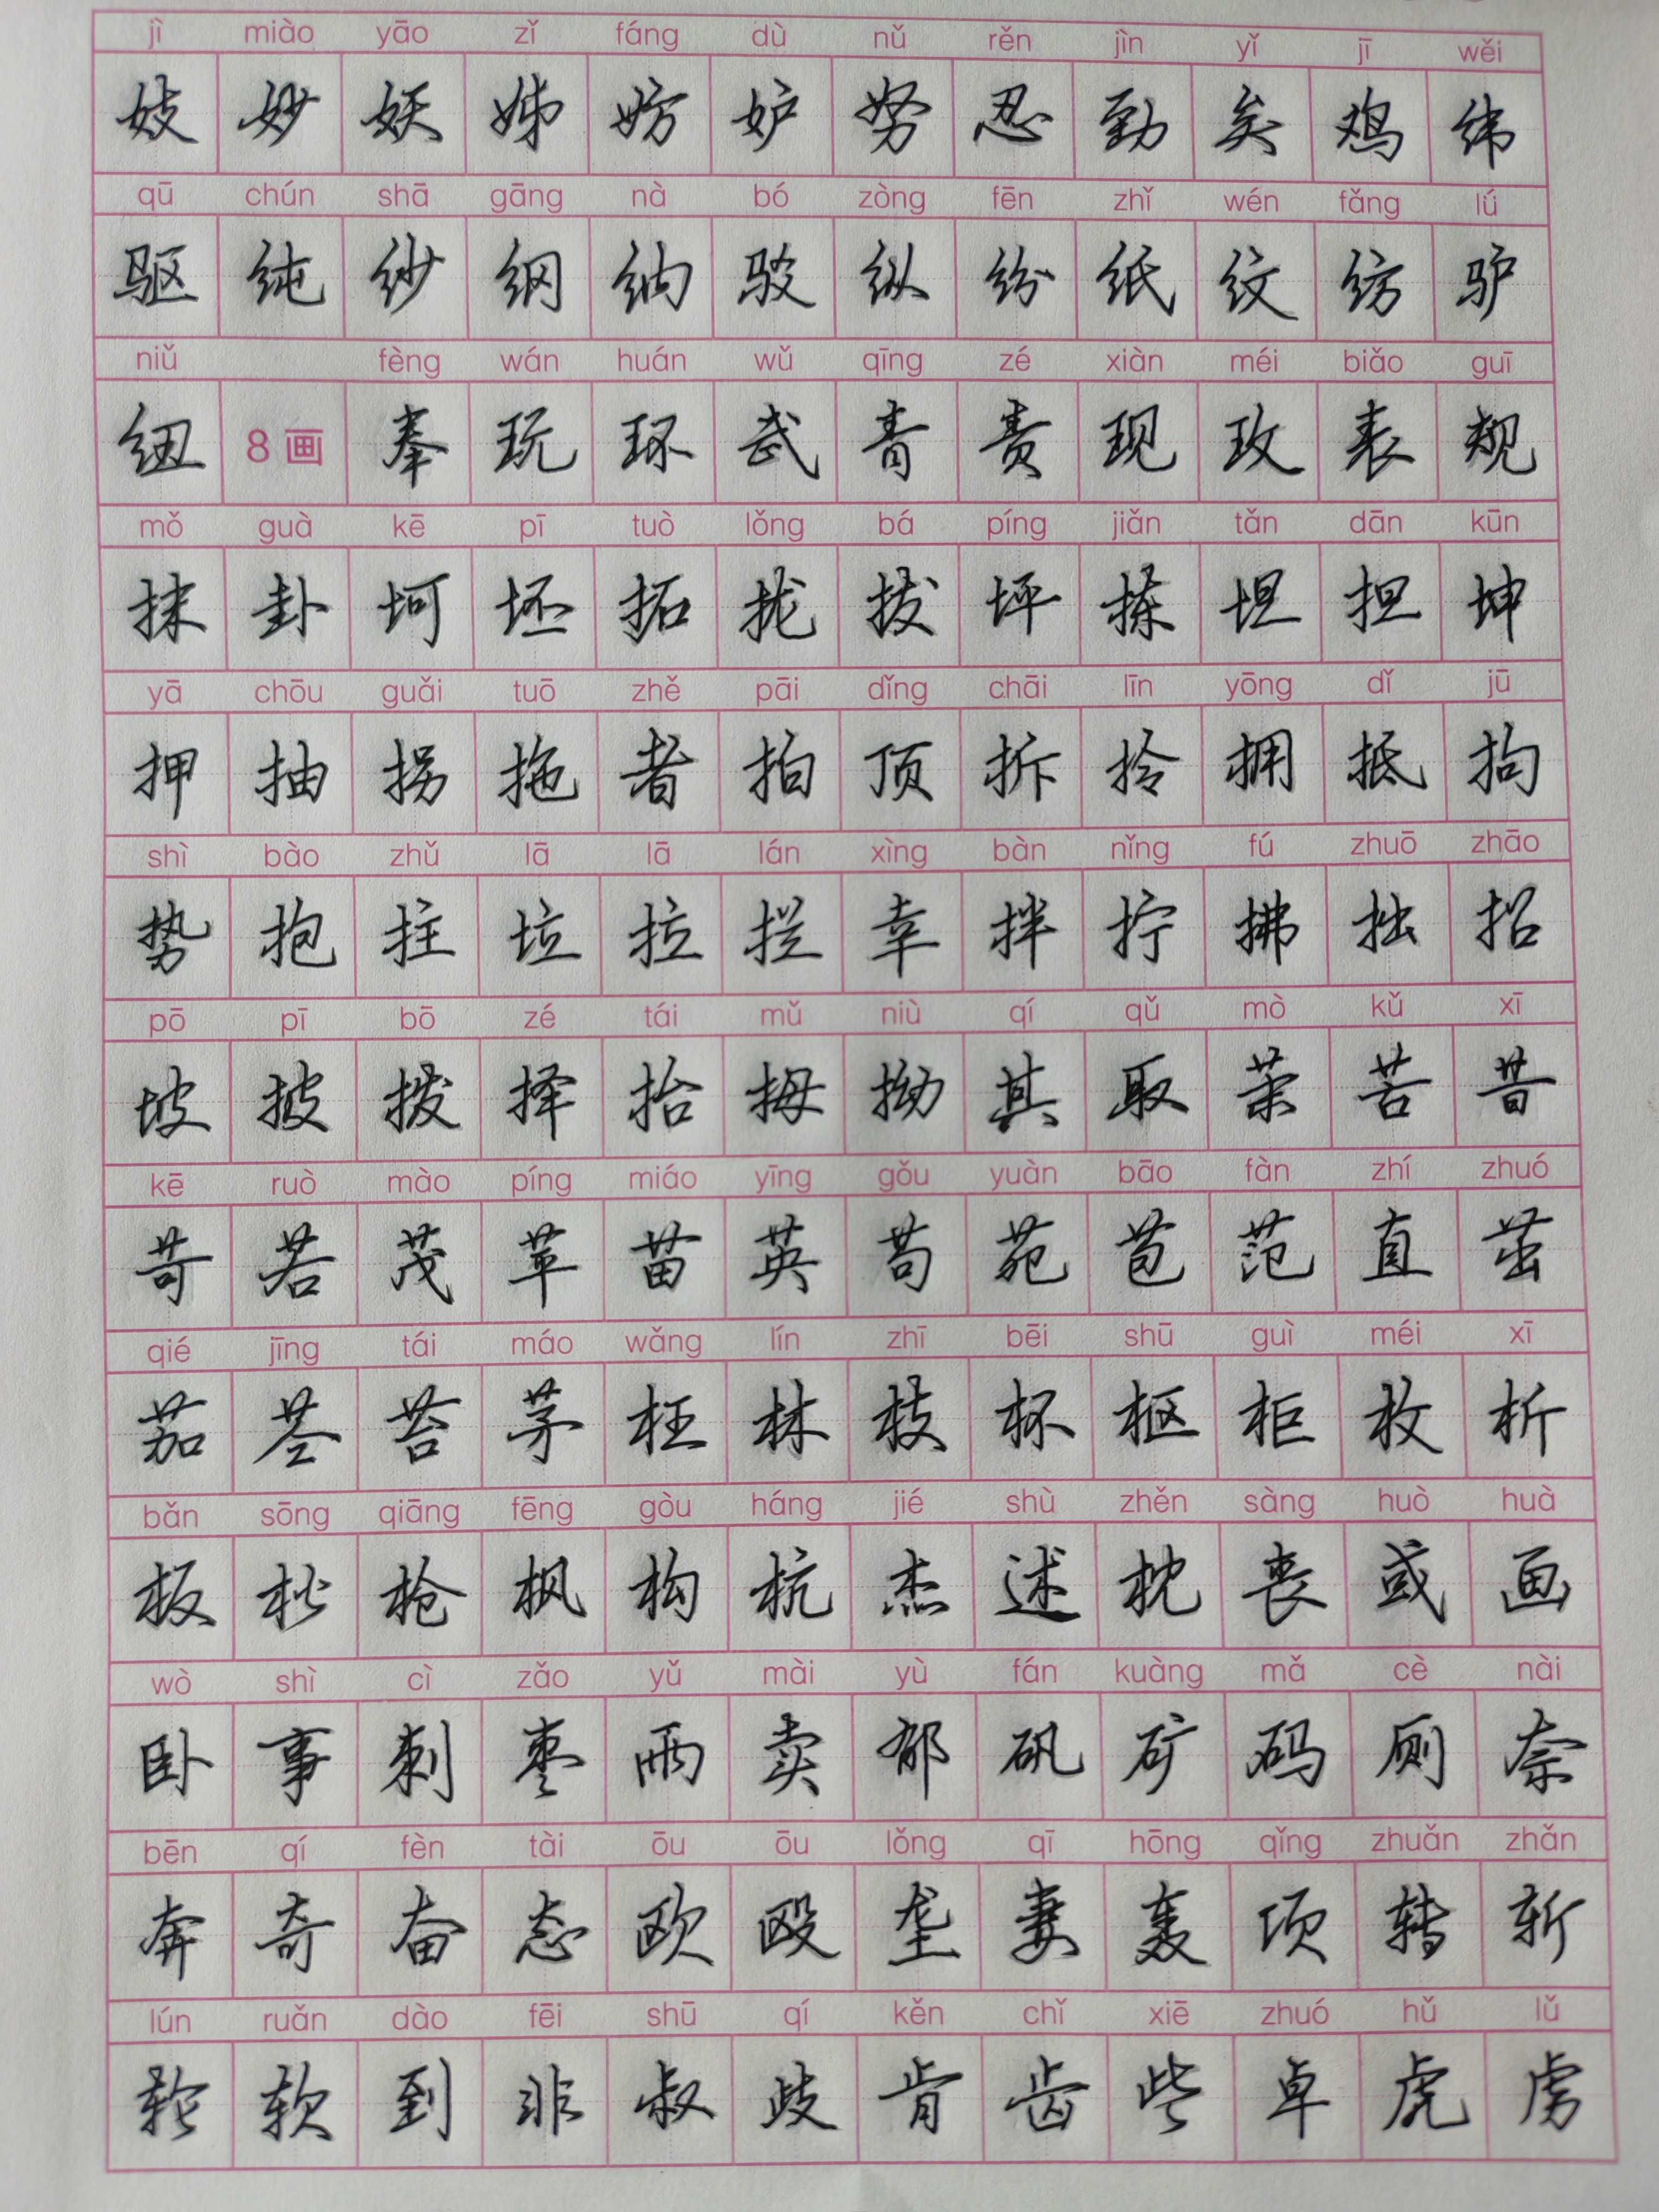 jì miào yāo zǐ fáng dù nǔ rěn jìn yǐ jī wěi
妓 妙 妖 姊 妨 妒 努 忍 劲 矣 鸡 纬
qū chún shā gāng nà bó zòng fēn zhǐ wén fǎng lǘ
驱 纯 纱 纲 纳 驳 纵 纷 纸 纹 纺 驴
niǔ fèng wán huán wǔ qīng zé xiàn méi biǎo guī
纽 8画 奉 玩 环 武 青 责 现 玫 表 规
mǒ guà kē pī tuò lǒng bá píng jiǎn tǎn dān kūn
抹 卦 坷 坯 拓 拢 拔 坪 拣 坦 担 坤
yā chōu guǎi tuō zhě pāi dǐng chāi līn yōng dǐ jū
押 抽 拐 拖 者 拍 顶 拆 拎 拥 抵 拘
shì bào zhǔ lā lā lán xìng bàn nǐng fú zhuō zhāo
势 抱 拄 垃 拉 拦 幸 拌 拧 拂 拙 招
pō pī bō zé tái mǔ niù qí qǔ mò kǔ xī
坡 披 拨 择 抬 拇 拗 其 取 茉 苦 昔
kē ruò mào píng miáo yīng gǒu yuàn bāo fàn zhí zhuó
苛 若 茂 苹 苗 英 苟 苑 苞 范 直 茁
qié jīng tái máo wǎng lín zhī bēi shū guì méi xī
茄 茎 苔 茅 枉 林 枝 杯 枢 柜 枚 析
bǎn sōng qiāng fēng gòu háng jié shù zhěn sàng huò huà
板 松 枪 枫 构 杭 杰 述 枕 丧 或 画
wò shì cì zǎo yǔ mài yù fán kuàng mǎ cè nài
卧 事 刺 枣 雨 卖 郁 矾 矿 码 厕 奈
bēn qí fèn tài ōu ōu lǒng qī hōng qǐng zhuǎn zhǎn
奔 奇 奋 态 欧 殴 垄 妻 轰 顷 转 斩
lún ruǎn dào fēi shū qí kěn chǐ xiē zhuó hǔ lǔ
轮 软 到 非 叔 歧 肯 齿 些 卓 虎 虏